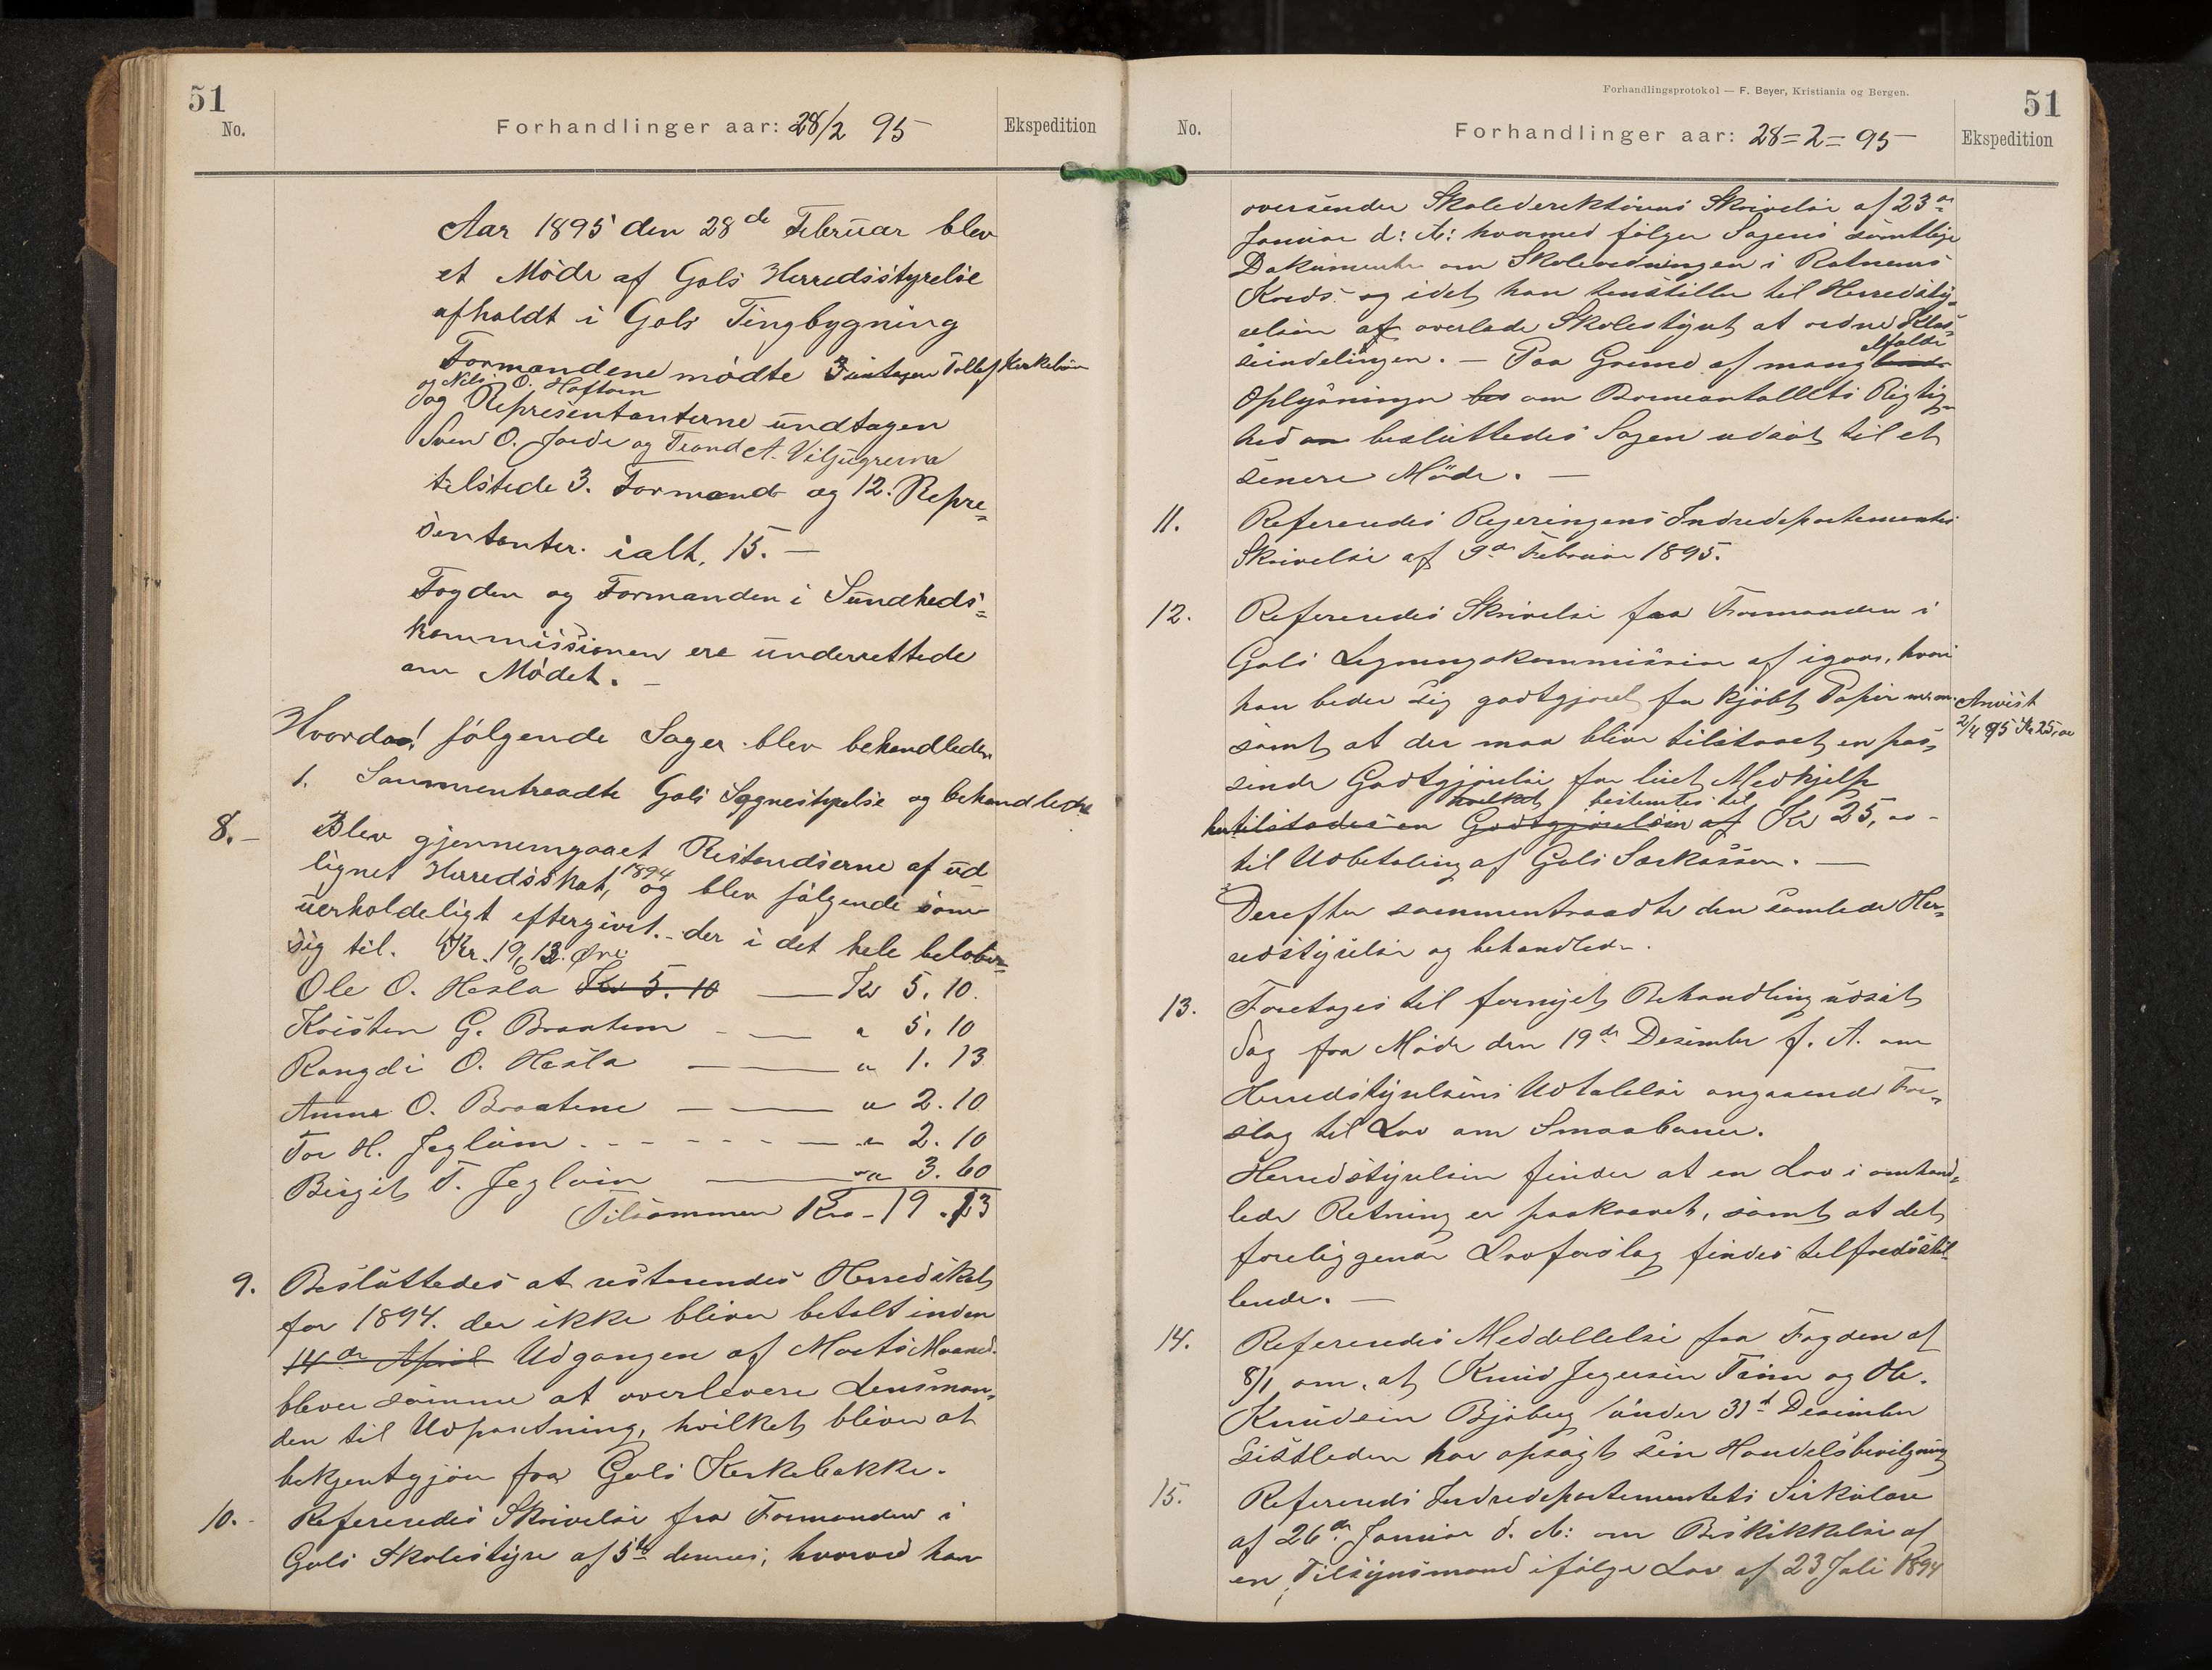 51
No.
Forhandlinger aar: 28/2 95
Ekspedition
Aar 1895 den 28de Februar blev
et Møde af Gols Herredsstyrelse
afholdt i Gols Tingbygning
Formandene mødte undtagen Tollef
og Nils O. Haftorn
og Repræsentanterne undtagen
Sven O. Jorde og Trond A. Viljugrema
tilstede 3. Formænd og 12. Repre-
sentanter. ialt, 15. —
Fogden og Formanden i Sundheds-
kommissionen ere underrettede
om Mødet. —
Hvorda! følgende Sager blev behandlede
1. Sammentraadte Gols Sognestyrelse og behandlede
8.- Blev gjennemgaaet Restandserne af ud-
lignet Herredsskat, 1894 og blev følgende som
uerholdeligt eftergivet. der i det hele beløber
sig til. Kr. 19,13. Øre
Ole O. Hesla Kr 5.10 — Kr 5.10.
Kristen G. Braaten — " 5.10
Rangdi O. Hesla — " 1.13
Anne O. Braatene — " 2.10
Tor H. Jegleim - - - - - " 2.10
Birgit T. Jegleim — " 3.60
Tilsammen Kr - 19.13
9. Besluttedes at resterendes Herredskat
for 1894. der ikke bliver betalt inden
14de April Udgangen af Marts Maaned.
bliver samme at overlevere Lensman-
den til Udpantning, hvilket bliver at
bekjentgjøre fra Gols Kirkebakke.
10. - Refereredes Skrivelse fra Formanden i
Gols Skolestyre af 5te dennes, hvorved han
Forhandlingsprotokol — F. Beyer, Kristiania og Bergen.
51
No.
Forhandlinger aar: 28=2=95—
Ekspedition
oversender Skoledirektørens Skrivelse af 23de
Januar d: A: hvormed følger Sagens samtlige
Dokumenter om Skoleordningen i Rotnems
Kreds og idet han henstiller til Herredsty-
relsen at overlade Skolestyret at ordne Klas-
seindelingen. — Paa Grund af mangelfulde
Oplysninger om Børneantallets Rigtig-
hed besluttedes Sagen udsat til et
senere Møde. —
11. Refereredes Regjeringens Indredepartementes
Skrivelse af 9de Februar 1895.
12. Refereredes Skrivelse fra Formanden i
Gols Ligningskommission af igaar, hvori
han beder sig godtgjort for kjøbt Papir m.m.
Anvist
2/4 95 Kr 25,00
samt at der maa blive tilstaaet en pas-
sende Godtgjørelse for leiet Medhjelp
hvilket bestemtes til
tilstodes en Godtgjørelse af Kr 25,00 -
til Udbetaling af Gols Særkassen. —
Derefter sammentraadte den samlede Her-
redstyrelse og behandlede.
13. Foretages til fornyet Behandling udsat
Sag fra Møde den 19de Desember f. A. om
Herredstyrelsens Udtalelse angaaende For-
slag til Lov om Smaabaner.
Herredstyrelsen finder at en Lov i omhand-
lede Retning er paakrævet, samt at det
foreliggende Lovforslag findes tilfredsstil-
lende. —
14. Refereredes Meddellelse fra Fogden af
8/1 om, at Knud Jegersen Trøim og Ole
Knudsen Bjøberg under 31te Desember
sistleden har opsagt sin Handelsbevilgning
15. Refereredes Indredepartementets Sirkulære
af 26de Januar d. A: om Beskikkelse af
en Tilsynsmand ifølge Lov af 23 Juli 1894